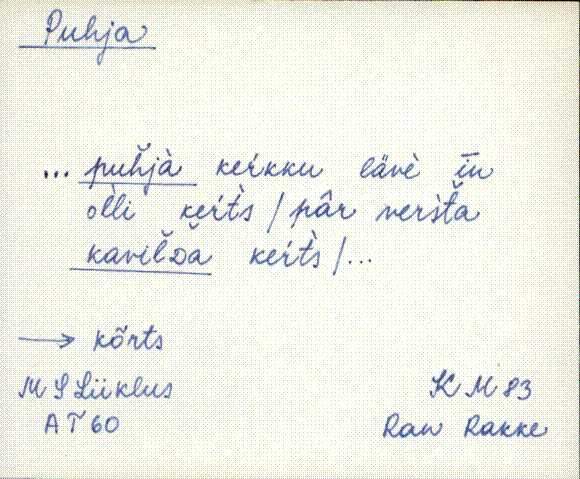 Puhja
... puȟjà keŕkku lävè īn
òlli keŕt̀s / pâr veŕšťa
kaviľďa keŕt̀s /...
→ kõrts
M S Liiklus
AT 60
KM 83
Ran Rakke